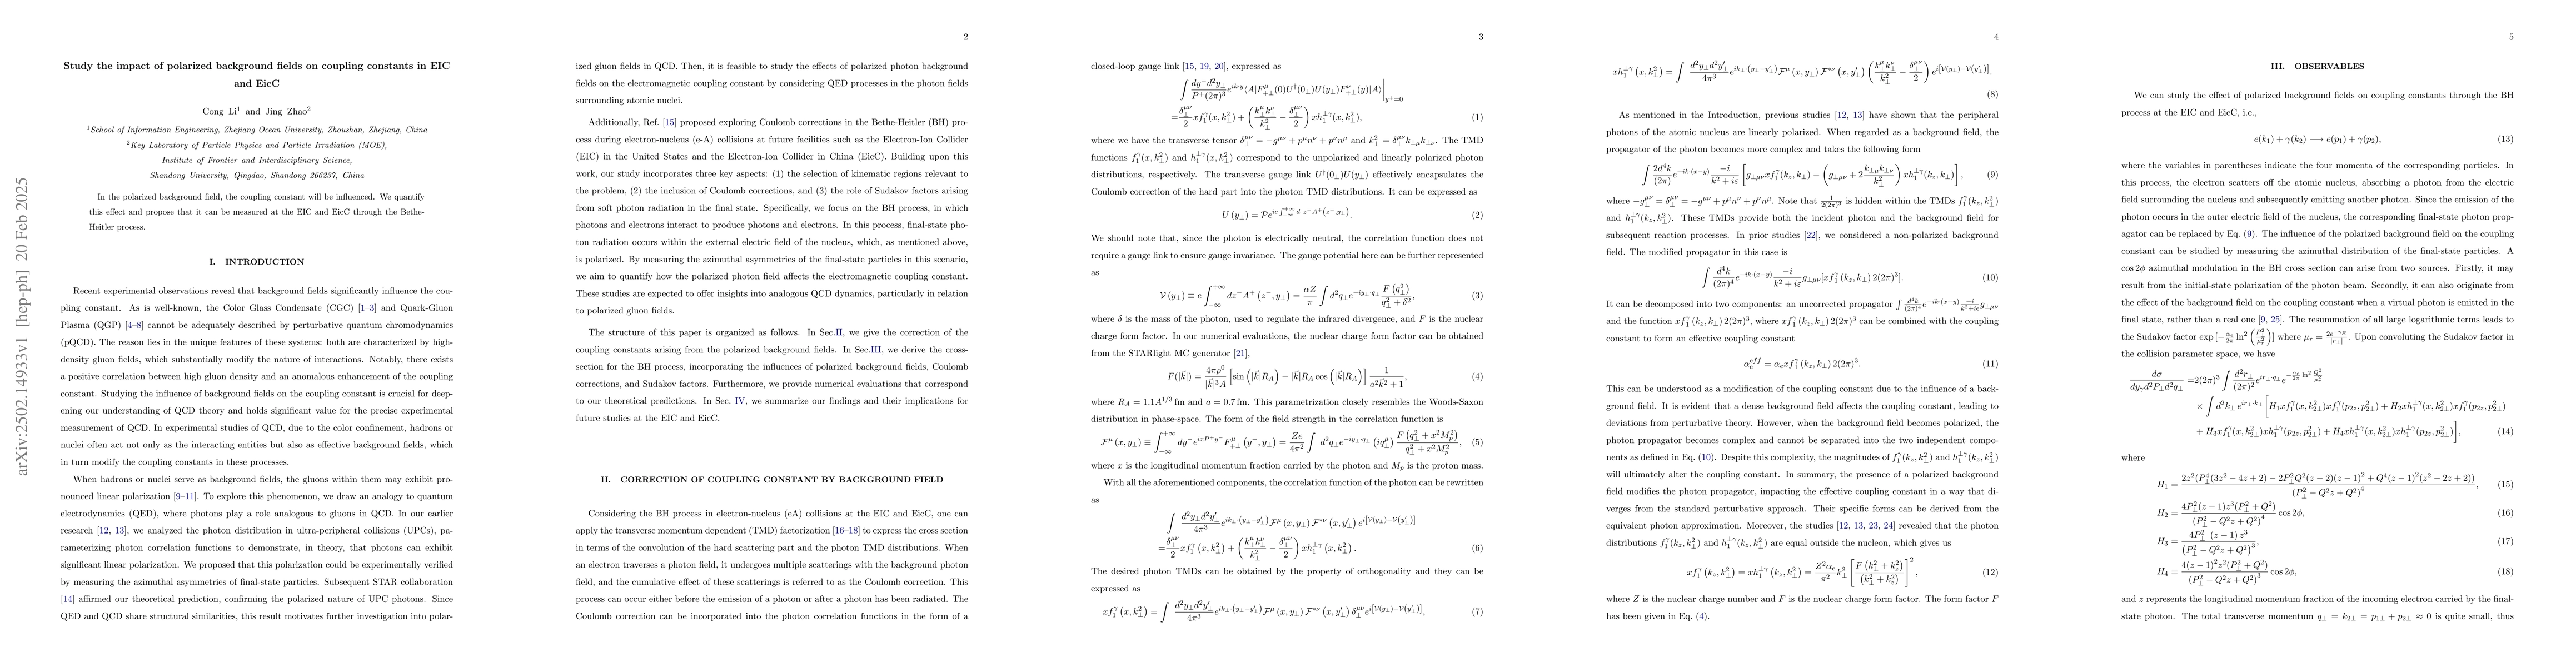 arXiv:2502.14933v1 [hep-ph] 20 Feb 2025
Study the impact of polarized background fields on coupling constants in EIC
and EicC
Cong Li¹ and Jing Zhao²
¹School of Information Engineering, Zhejiang Ocean University, Zhoushan, Zhejiang, China
²Key Laboratory of Particle Physics and Particle Irradiation (MOE),
Institute of Frontier and Interdisciplinary Science,
Shandong University, Qingdao, Shandong 266237, China
In the polarized background field, the coupling constant will be influenced. We quantify
this effect and propose that it can be measured at the EIC and EicC through the Bethe-
Heitler process.
I. INTRODUCTION
Recent experimental observations reveal that background fields significantly influence the cou-
pling constant. As is well-known, the Color Glass Condensate (CGC) [1–3] and Quark-Gluon
Plasma (QGP) [4–8] cannot be adequately described by perturbative quantum chromodynamics
(pQCD). The reason lies in the unique features of these systems: both are characterized by high-
density gluon fields, which substantially modify the nature of interactions. Notably, there exists
a positive correlation between high gluon density and an anomalous enhancement of the coupling
constant. Studying the influence of background fields on the coupling constant is crucial for deep-
ening our understanding of QCD theory and holds significant value for the precise experimental
measurement of QCD. In experimental studies of QCD, due to the color confinement, hadrons or
nuclei often act not only as the interacting entities but also as effective background fields, which
in turn modify the coupling constants in these processes.
When hadrons or nuclei serve as background fields, the gluons within them may exhibit pro-
nounced linear polarization [9–11]. To explore this phenomenon, we draw an analogy to quantum
electrodynamics (QED), where photons play a role analogous to gluons in QCD. In our earlier
research [12, 13], we analyzed the photon distribution in ultra-peripheral collisions (UPCs), pa-
rameterizing photon correlation functions to demonstrate, in theory, that photons can exhibit
significant linear polarization. We proposed that this polarization could be experimentally verified
by measuring the azimuthal asymmetries of final-state particles. Subsequent STAR collaboration
[14] affirmed our theoretical prediction, confirming the polarized nature of UPC photons. Since
QED and QCD share structural similarities, this result motivates further investigation into polar-
2
ized gluon fields in QCD. Then, it is feasible to study the effects of polarized photon background
fields on the electromagnetic coupling constant by considering QED processes in the photon fields
surrounding atomic nuclei.
Additionally, Ref. [15] proposed exploring Coulomb corrections in the Bethe-Heitler (BH) pro-
cess during electron-nucleus (e-A) collisions at future facilities such as the Electron-Ion Collider
(EIC) in the United States and the Electron-Ion Collider in China (EicC). Building upon this
work, our study incorporates three key aspects: (1) the selection of kinematic regions relevant to
the problem, (2) the inclusion of Coulomb corrections, and (3) the role of Sudakov factors arising
from soft photon radiation in the final state. Specifically, we focus on the BH process, in which
photons and electrons interact to produce photons and electrons. In this process, final-state pho-
ton radiation occurs within the external electric field of the nucleus, which, as mentioned above,
is polarized. By measuring the azimuthal asymmetries of the final-state particles in this scenario,
we aim to quantify how the polarized photon field affects the electromagnetic coupling constant.
These studies are expected to offer insights into analogous QCD dynamics, particularly in relation
to polarized gluon fields.
The structure of this paper is organized as follows. In Sec.II, we give the correction of the
coupling constants arising from the polarized background fields. In Sec.III, we derive the cross-
section for the BH process, incorporating the influences of polarized background fields, Coulomb
corrections, and Sudakov factors. Furthermore, we provide numerical evaluations that correspond
to our theoretical predictions. In Sec. IV, we summarize our findings and their implications for
future studies at the EIC and EicC.
II. CORRECTION OF COUPLING CONSTANT BY BACKGROUND FIELD
Considering the BH process in electron-nucleus (eA) collisions at the EIC and EicC, one can
apply the transverse momentum dependent (TMD) factorization [16–18] to express the cross section
in terms of the convolution of the hard scattering part and the photon TMD distributions. When
an electron traverses a photon field, it undergoes multiple scatterings with the background photon
field, and the cumulative effect of these scatterings is referred to as the Coulomb correction. This
process can occur either before the emission of a photon or after a photon has been radiated. The
Coulomb correction can be incorporated into the photon correlation functions in the form of a
3
closed-loop gauge link [15, 19, 20], expressed as
∫ dy⁻d²y⊥/(P⁺(2π)³) e^{ik·y} ⟨A|F^μ_{+⊥}(0)U†(0⊥)U(y⊥)F^ν_{+⊥}(y)|A⟩|_{y⁺=0}
= δ⊥^{μν}/2 x f₁^γ(x,k⊥²) + (k⊥^μ k⊥^ν/k⊥² − δ⊥^{μν}/2) x h₁^{⊥γ}(x,k⊥²), (1)
where we have the transverse tensor δ⊥^{μν} = −g^{μν} + p^μn^ν + p^νn^μ and k⊥² = δ⊥^{μν}k⊥μk⊥ν. The TMD
functions f₁^γ(x,k⊥²) and h₁^{⊥γ}(x,k⊥²) correspond to the unpolarized and linearly polarized photon
distributions, respectively. The transverse gauge link U†(0⊥)U(y⊥) effectively encapsulates the
Coulomb correction of the hard part into the photon TMD distributions. It can be expressed as
U (y⊥) = 𝒫e^{ie ∫_{−∞}^{+∞} d z⁻A⁺(z⁻,y⊥)}. (2)
We should note that, since the photon is electrically neutral, the correlation function does not
require a gauge link to ensure gauge invariance. The gauge potential here can be further represented
as
𝒱(y⊥) ≡ e ∫_{−∞}^{+∞} dz⁻A⁺(z⁻,y⊥) = αZ/π ∫ d²q⊥ e^{−iy⊥·q⊥} F(q⊥²)/(q⊥²+δ²), (3)
where δ is the mass of the photon, used to regulate the infrared divergence, and F is the nuclear
charge form factor. In our numerical evaluations, the nuclear charge form factor can be obtained
from the STARlight MC generator [21],
F(|k⃗|) = 4πρ⁰/(|k⃗|³A) [sin(|k⃗|R_A) − |k⃗|R_A cos(|k⃗|R_A)] 1/(a²k⃗²+1), (4)
where R_A = 1.1A^{1/3} fm and a = 0.7 fm. This parametrization closely resembles the Woods-Saxon
distribution in phase-space. The form of the field strength in the correlation function is
ℱ^μ(x,y⊥) ≡ ∫_{−∞}^{+∞} dy⁻e^{ixP⁺y⁻}F^μ_{+⊥}(y⁻,y⊥) = Ze/4π² ∫ d²q⊥e^{−iy⊥·q⊥}(iq⊥^μ) F(q⊥²+x²M_p²)/(q⊥²+x²M_p²), (5)
where x is the longitudinal momentum fraction carried by the photon and M_p is the proton mass.
With all the aforementioned components, the correlation function of the photon can be rewritten
as
∫ d²y⊥d²y′⊥/4π³ e^{ik⊥·(y⊥−y′⊥)} ℱ^μ(x,y⊥) ℱ*^ν(x,y′⊥) e^{i[𝒱(y⊥)−𝒱(y′⊥)]}
= δ⊥^{μν}/2 x f₁^γ(x,k⊥²) + (k⊥^μ k⊥^ν/k⊥² − δ⊥^{μν}/2) x h₁^{⊥γ}(x,k⊥²). (6)
The desired photon TMDs can be obtained by the property of orthogonality and they can be
expressed as
x f₁^γ(x,k⊥²) = ∫ d²y⊥d²y′⊥/4π³ e^{ik⊥·(y⊥−y′⊥)} ℱ^μ(x,y⊥) ℱ*^ν(x,y′⊥) δ⊥^{μν} e^{i[𝒱(y⊥)−𝒱(y′⊥)]}, (7)
4
x h₁^{⊥γ}(x,k⊥²) = ∫ d²y⊥d²y′⊥/4π³ e^{ik⊥·(y⊥−y′⊥)} ℱ^μ(x,y⊥) ℱ*^ν(x,y′⊥) (k⊥^μ k⊥^ν/k⊥² − δ⊥^{μν}/2) e^{i[𝒱(y⊥)−𝒱(y′⊥)]}.
(8)
As mentioned in the Introduction, previous studies [12, 13] have shown that the peripheral
photons of the atomic nucleus are linearly polarized. When regarded as a background field, the
propagator of the photon becomes more complex and takes the following form
∫ 2d⁴k/(2π) e^{−ik·(x−y)} −i/(k²+iε) [g⊥μν x f₁^γ(k_z,k⊥) − (g⊥μν + 2 k⊥μk⊥ν/k⊥²) x h₁^{⊥γ}(k_z,k⊥)], (9)
where −g⊥^{μν} = δ⊥^{μν} = −g^{μν} + p^μn^ν + p^νn^μ. Note that 1/(2(2π)³) is hidden within the TMDs f₁^γ(k_z,k⊥²)
and h₁^{⊥γ}(k_z,k⊥²). These TMDs provide both the incident photon and the background field for
subsequent reaction processes. In prior studies [22], we considered a non-polarized background
field. The modified propagator in this case is
∫ d⁴k/(2π)⁴ e^{−ik·(x−y)} −i/(k²+iε) g⊥μν[x f₁^γ(k_z,k⊥) 2(2π)³]. (10)
It can be decomposed into two components: an uncorrected propagator ∫ d⁴k/(2π)⁴ e^{−ik·(x−y)} −i/(k²+iε) g⊥μν
and the function x f₁^γ(k_z,k⊥) 2(2π)³, where x f₁^γ(k_z,k⊥) 2(2π)³ can be combined with the coupling
constant to form an effective coupling constant
α_e^{eff} = α_e x f₁^γ(k_z,k⊥) 2(2π)³. (11)
This can be understood as a modification of the coupling constant due to the influence of a back-
ground field. It is evident that a dense background field affects the coupling constant, leading to
deviations from perturbative theory. However, when the background field becomes polarized, the
photon propagator becomes complex and cannot be separated into the two independent compo-
nents as defined in Eq. (10). Despite this complexity, the magnitudes of f₁^γ(k_z,k⊥²) and h₁^{⊥γ}(k_z,k⊥²)
will ultimately alter the coupling constant. In summary, the presence of a polarized background
field modifies the photon propagator, impacting the effective coupling constant in a way that di-
verges from the standard perturbative approach. Their specific forms can be derived from the
equivalent photon approximation. Moreover, the studies [12, 13, 23, 24] revealed that the photon
distributions f₁^γ(k_z,k⊥²) and h₁^{⊥γ}(k_z,k⊥²) are equal outside the nucleon, which gives us
x f₁^γ(k_z,k⊥²) = x h₁^{⊥γ}(k_z,k⊥²) = Z²α_e/π² k⊥² [F(k⊥²+k_z²)/(k⊥²+k_z²)]², (12)
where Z is the nuclear charge number and F is the nuclear charge form factor. The form factor F
has been given in Eq. (4).
5
III. OBSERVABLES
We can study the effect of polarized background fields on coupling constants through the BH
process at the EIC and EicC, i.e.,
e(k₁) + γ(k₂) ⟶ e(p₁) + γ(p₂), (13)
where the variables in parentheses indicate the four momenta of the corresponding particles. In
this process, the electron scatters off the atomic nucleus, absorbing a photon from the electric
field surrounding the nucleus and subsequently emitting another photon. Since the emission of the
photon occurs in the outer electric field of the nucleus, the corresponding final-state photon prop-
agator can be replaced by Eq. (9). The influence of the polarized background field on the coupling
constant can be studied by measuring the azimuthal distribution of the final-state particles. A
cos 2ϕ azimuthal modulation in the BH cross section can arise from two sources. Firstly, it may
result from the initial-state polarization of the photon beam. Secondly, it can also originate from
the effect of the background field on the coupling constant when a virtual photon is emitted in the
final state, rather than a real one [9, 25]. The resummation of all large logarithmic terms leads to
the Sudakov factor exp [−α_e/2π ln²(P⊥²/μ_r²)] where μ_r = 2e^{−γ_E}/|r⊥|. Upon convoluting the Sudakov factor in
the collision parameter space, we have
dσ/(dy_γd²P⊥d²q⊥) = 2(2π)³ ∫ d²r⊥/(2π)² e^{ir⊥·q⊥} e^{−α_e/2π ln² Q²/μ_r²}
× ∫ d²k⊥ e^{ir⊥·k⊥} [H₁x f₁^γ(x,k²_{2⊥})x f₁^γ(p_{2z},p²_{2⊥}) + H₂x h₁^{⊥γ}(x,k²_{2⊥})x f₁^γ(p_{2z},p²_{2⊥})
+ H₃x f₁^γ(x,k²_{2⊥})x h₁^{⊥γ}(p_{2z},p²_{2⊥}) + H₄x h₁^{⊥γ}(x,k²_{2⊥})x h₁^{⊥γ}(p_{2z},p²_{2⊥})], (14)
where
H₁ = 2z²(P⊥⁴(3z² − 4z + 2) − 2P⊥²Q²(z − 2)(z − 1)² + Q⁴(z − 1)²(z² − 2z + 2))/(P⊥² − Q²z + Q²)⁴, (15)
H₂ = 4P⊥²(z − 1)z³(P⊥² + Q²)/(P⊥² − Q²z + Q²)⁴ cos 2ϕ, (16)
H₃ = 4P⊥² (z − 1) z³/(P⊥² − Q²z + Q²)³, (17)
H₄ = 4(z − 1)²z²(P⊥² + Q²)/(P⊥² − Q²z + Q²)³ cos 2ϕ, (18)
and z represents the longitudinal momentum fraction of the incoming electron carried by the final-
state photon. The total transverse momentum q⊥ = k₂⊥ = p₁⊥ + p₂⊥ ≈ 0 is quite small, thus